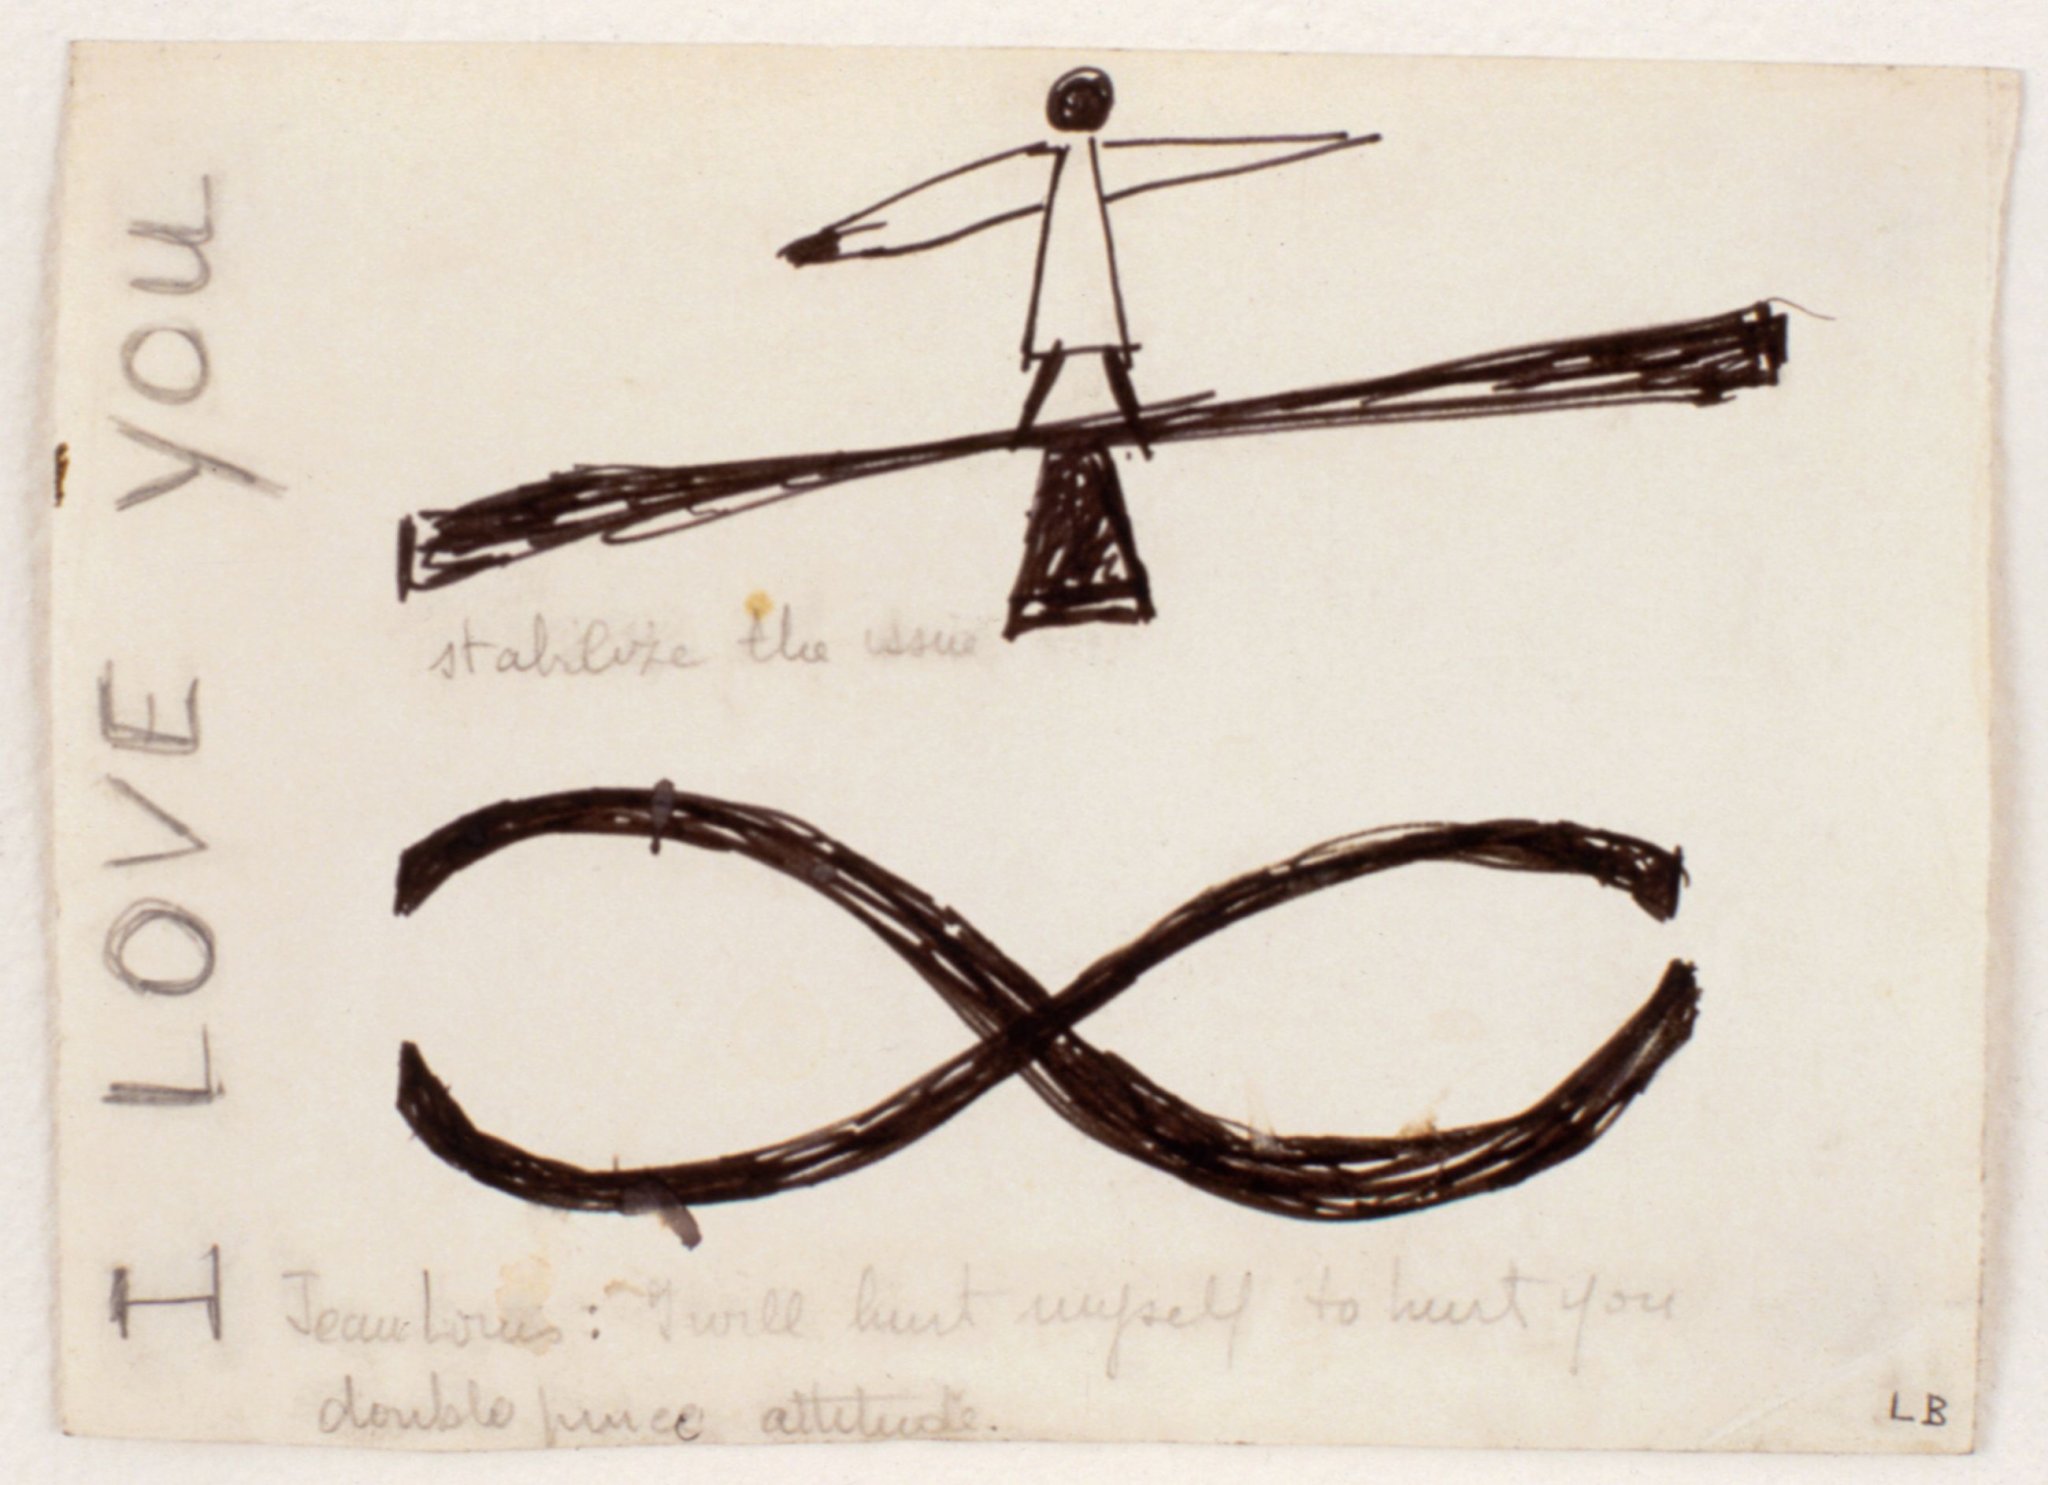 I LOVE YOU
stabilize the issue
Jean Louis: I will hurt myself to hurt you
double pince attitude.
LB